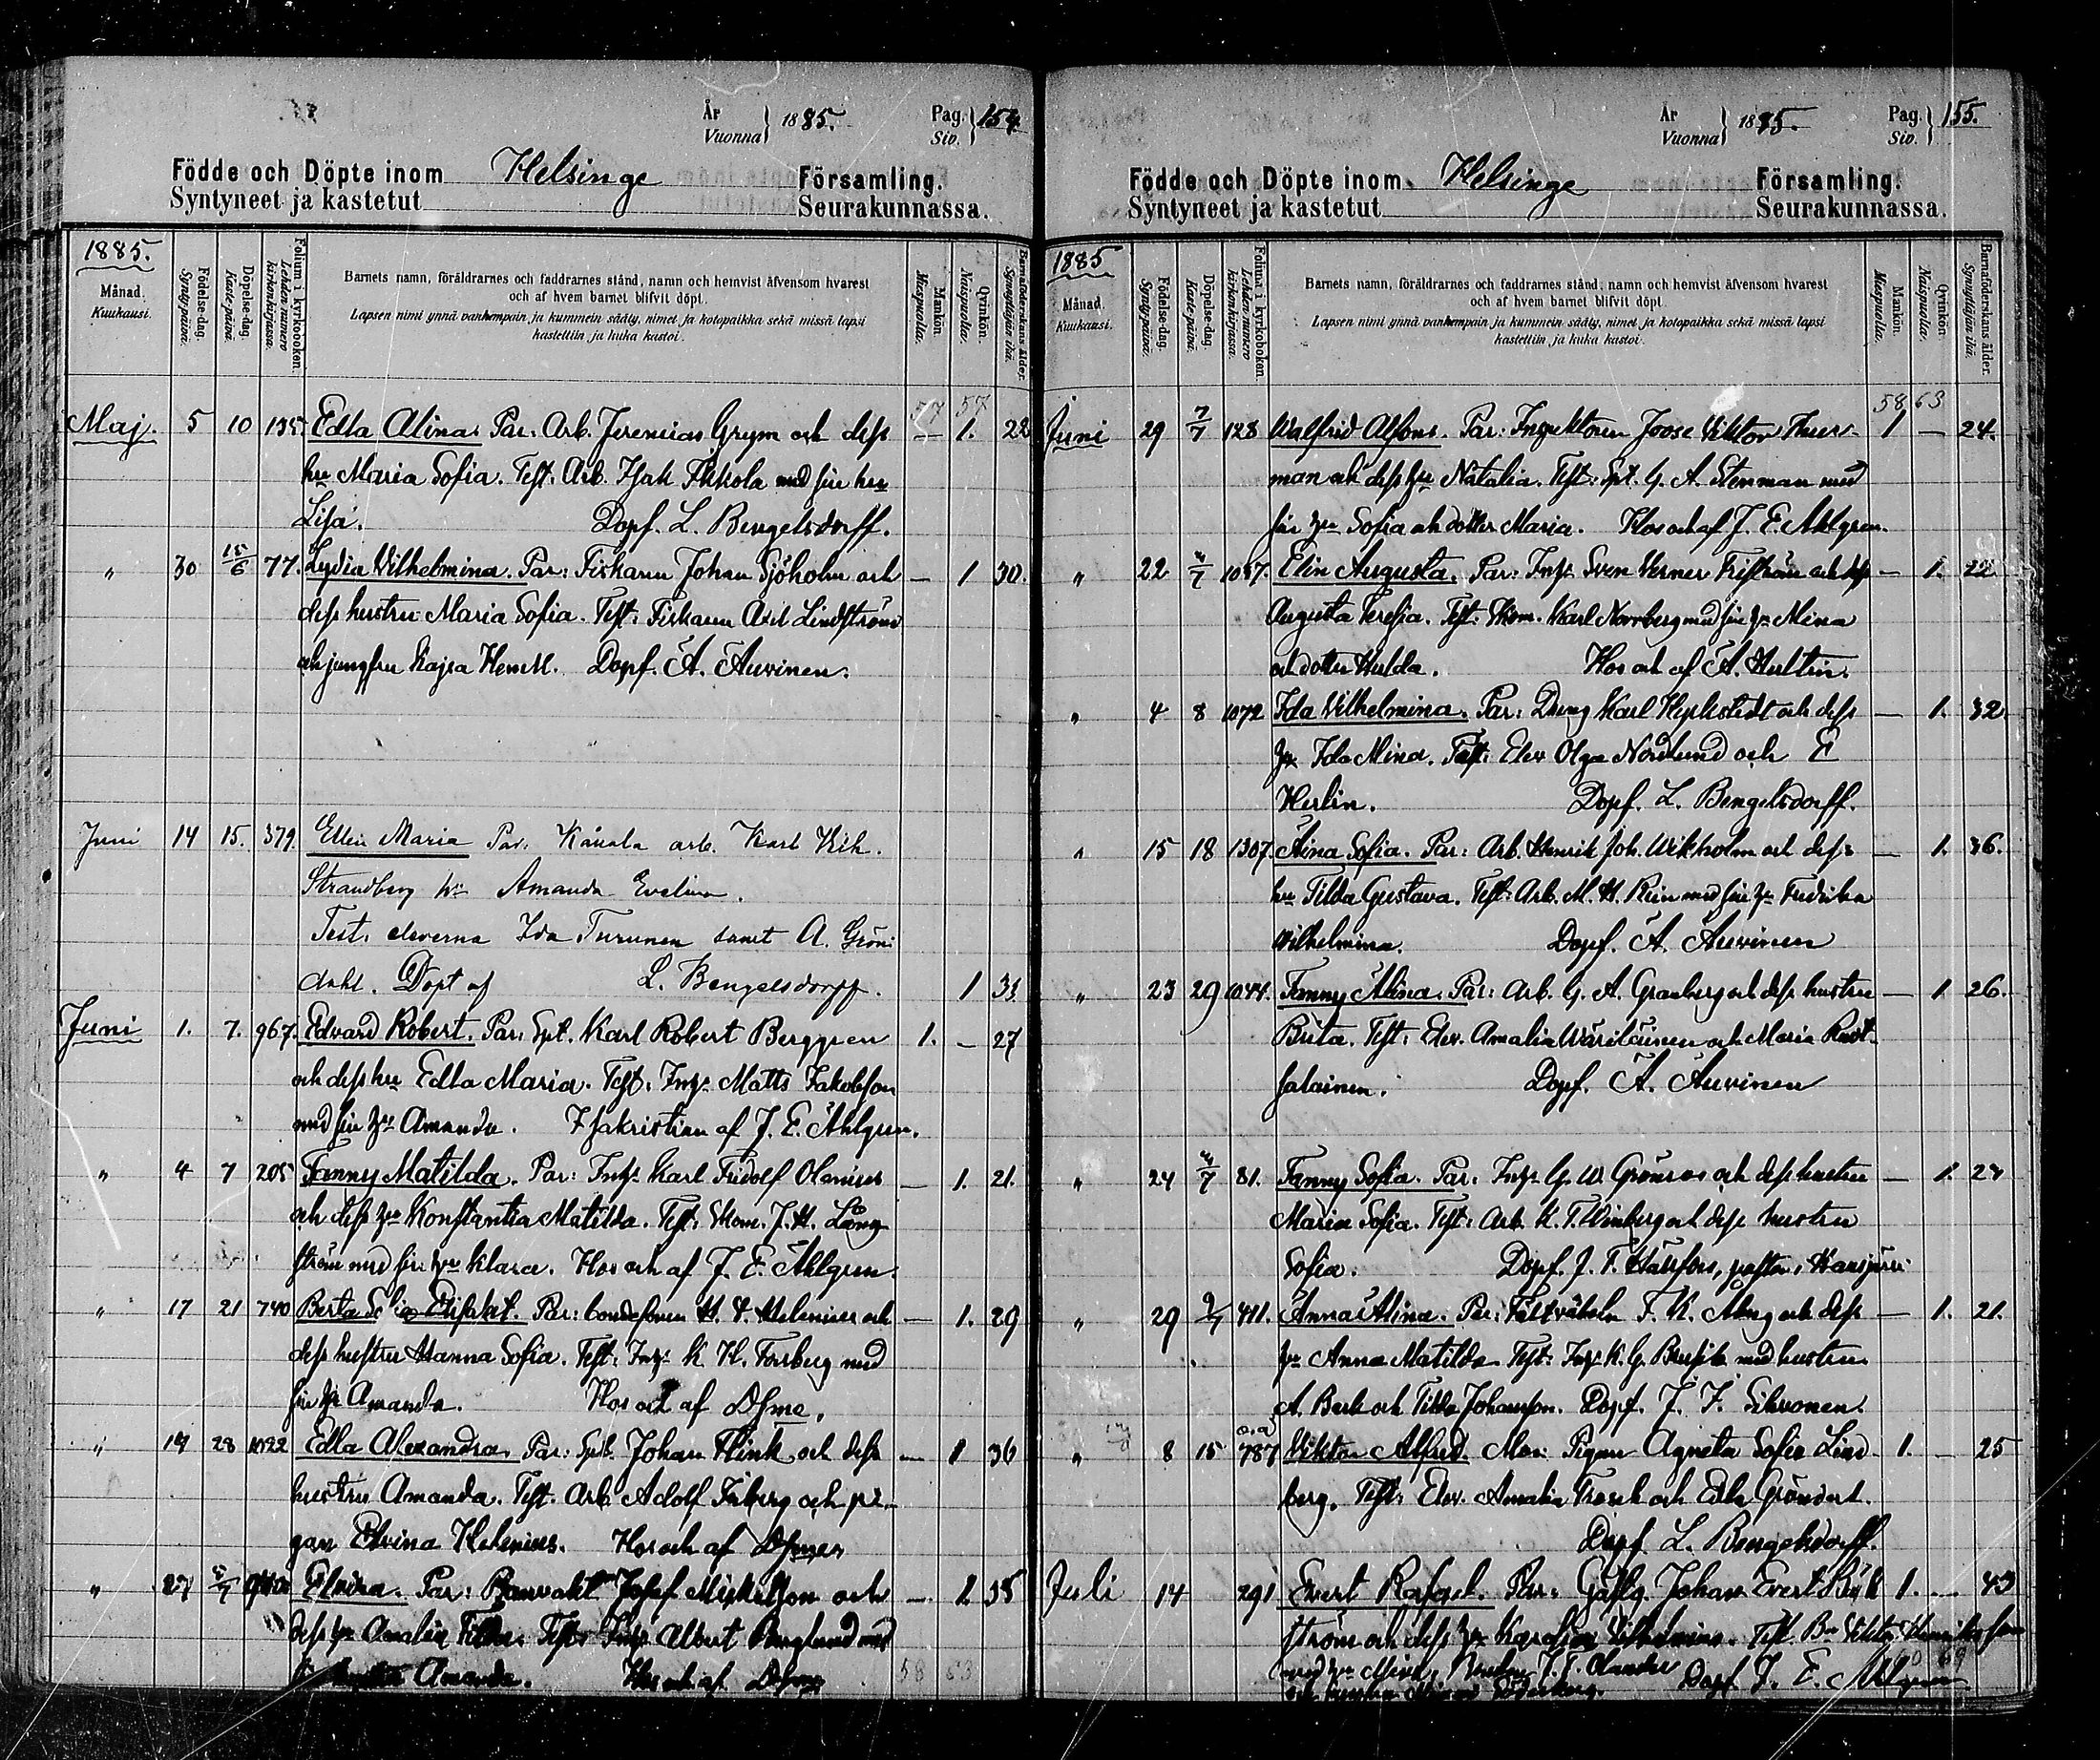 År
Vuonna } 1885.
Pag.
Siv. } 154
Födde och Döpte inom Helsinge Församling.
Syntyneet ja kastetut Seurakunnassa.
1885.
Månad.
Kuukausi.
Födelse-dag.
Syntypäivä.
Döpelse-dag.
Kaste-päivä.
Folium i kyrkoboken.
Lehden numero kirkonkirjassa.
Barnets namn, föräldrarnes och faddrarnes stånd, namn och hemvist äfvensom hvarest
och af hvem barnet blifvit döpt.
Lapsen nimi ynnä vanhempain ja kummein sääty, nimet ja kotopaikka sekä missä lapsi
kastettiin ja kuka kastoi.
Mankön.
Miespuolia.
Qvinkön.
Naispuolia.
Barnaföderskans ålder.
Synnyttäjän ikä.
57 57
Maj. 5 10 135 Edla Alina. Par. Arb. Jeremias Grym och dess — 1. 28
hu Maria Sofia. Test. Arb. Isak Ikkola med sin hu
Lisa. Döpf. L. Bengelsdorff.
" 30 15/6 77. Lydia Vilhelmina. Par: Fiskaren Johan Sjöholm och — 1 30.
dess hustru Maria Sofia. Test: Fiskaren Axel Lindström
och jungfru Kajsa Döpf. A. Auvinen.
Juni 14 15. 379. Ellin Maria Par. arb. Karl Vilh.
Strandberg hu Amanda Evelina.
Test. eleverna Ida Turunen samt A. Grön
dahl. Döpt af L. Bengelsdorff. 1 31
Juni 1. 7. 967. Edvard Robert. Par: Spt. Karl Robert Berggren 1. — 27
och dess hu Edla Maria. Test: Inhs Matts Jakobsson
med sin hu Amanda. I sakristian af J. E. Ahlgren.
" 4 7 205 Fanny Matilda. Par: Inhs Karl Fridolf Olenius — 1. 21.
och dess hu Konstantia Matilda. Test: Skom. J. H. Lång
ström med sin hu Klara. Hos och af J. E. Ahlgren.
" 17 21 740 Berta Elisabet. Par: H. V. Helenius och — 1. 29
dess hustru Hanna Sofia. Test: Inhs K. H. Forsberg med
sin hu Amanda. Hos och af Dsme.
" 19 28 1022 Edla Alexandra. Par: Spt. Johan Flink och dess — 1 36
hustru Amanda. Test. Arb. Adolf Friberg och pi-
gan Elvina Helenius. Hos och af Dsme.
" 27 5/7 Elvina. Par: Banvakt Josef Mickelsson och — 1 35
dess hu Amalia Test: Inhs Albert Berglund med
Amanda. Hos och af Dsme
58 63
År
Vuonna } 1885.
Pag.
Siv. } 155.
Födde och Döpte inom Helsinge Församling.
Syntyneet ja kastetut Seurakunnassa.
1885
Månad.
Kuukausi.
Födelse-dag.
Syntypäivä.
Döpelse-dag.
Kaste-päivä.
Folium i kyrkoboken.
Lehden numero kirkonkirjassa.
Barnets namn, föräldrarnes och faddrarnes stånd, namn och hemvist äfvensom hvarest
och af hvem barnet blifvit döpt.
Lapsen nimi ynnä vanhempain ja kummein sääty, nimet ja kotopaikka sekä missä lapsi
kastettiin ja kuka kastoi.
Mankön.
Miespuolia.
Qvinkön.
Naispuolia.
Barnaföderskans ålder.
Synnyttäjän ikä.
58 63
Juni 29 7/7 128 Walfrid Alfons. Par: Inspektoren Joose Viktor Thure- 1 — 24.
man och dess hu Natalia. Test: Spt. G. A. Stenman med
sin hu Sofia och dotter Maria. Hos och af J. E. Ahlgren.
" 22 4/7 1057. Elin Augusta. Par: Inhs Sven Verner Friström och dess — 1. 22
Augusta Teresia. Test: Skom. Karl Norrberg med sin hu Mina
och dotter Hulda. Hos och af A. Hultin.
" 4 8 1072 Ida Vilhelmina. Par: Dreng Karl och dess — 1. 32
hu Ida Mina. Test: Elev Olga Nordlund och E
Herlin. Döpf. L. Bengelsdorff.
" 15 18 1307. Aina Sofia. Par: Arb. Henrik Joh. Wikholm och dess — 1. 36.
hu Tilda Gustava. Test: Arb. M. H. Rein med sin hu Fredrika
Wilhelmina. Döpf. A. Auvinen
" 23 29 1044. Fanny Alina. Par: Arb. G. A. Granberg och dess hustru — 1 26.
Brita. Test: Elev. Amalia Wäriläinen och Maria
salainen. Döpf. A. Auvinen
" 24 4/7 81. Fanny Sofia. Par: Inhs G. W. Grönroos och dess hustru — 1. 27
Maria Sofia. Test: Arb. K. T. Winberg och dess hustru
Sofia. Döpf. J. T. Hällfors, pastor i
" 29 9/7 411. Anna Alina. Par: F. K. Alberg och dess — 1. 21.
hu Anna Matilda. Test: Inhs K. G. med hustru
A. och Tilda Johansson. Döpf. J. F. Sihvonen.
" 8 15 o.ä 787 Viktor Alfred. Mor: Pigan Agneta Sofia Lind- 1. — 25
berg. Test: Elev. Amalia Trosch och Edla Gröndahl.
Döpf. L. Bengelsdorff.
Juli 14 291 Evert Rafael. Par: Johan Evert 1. — 43
ström och dess hu Karolina Vilhelmina. Test. Bn Viktor Henriksson
med hu Mina, J. F. Olander Döpf. J. E. Ahlgren
Söderberg.